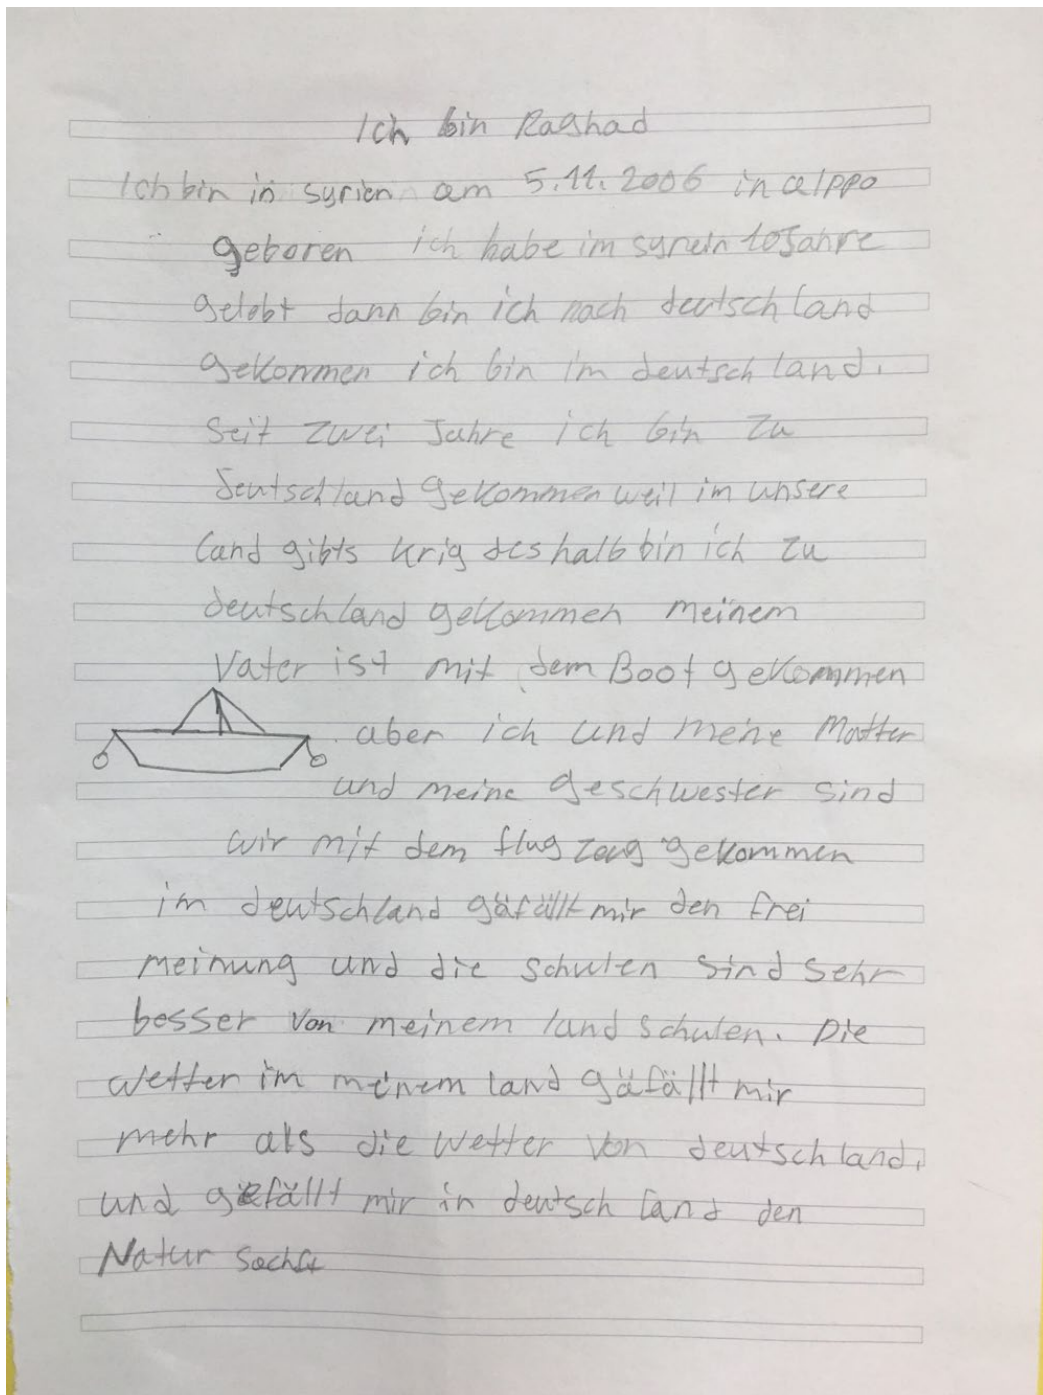 Ich bin Raghad
Ich bin in syrien am 5.11.2006 in alppo
geboren ich habe im syrein 10 Jahre
gelebt dann bin ich nach deutschland
gekommen ich bin im deutschland.
Seit zwei Jahre ich bin zu
deutschland gekommen weil im unsere
land gibts krig deshalb bin ich zu
deutschland gekommen meinem
Vater ist mit dem Boot gekommen
aber ich und meine Mutter
und meine geschwester sind
wir mit dem flug zeug gekommen
im deutschland gäfällt mir den frei
meinung und die schulen sind sehr
besser von meinem land schulen. Die
wetter im meinem land gäfällt mir
mehr als die wetter von deutschland.
und gefällt mir in deutsch land den
Natur